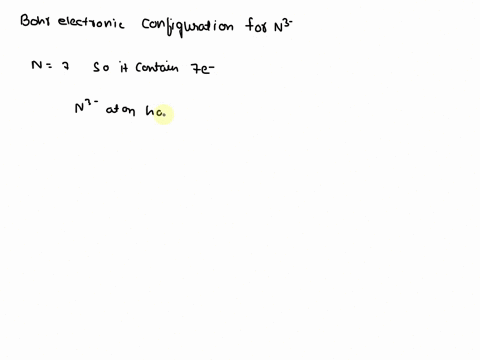 Bohr electronic configuration for N³⁻
N = 7 so it contain 7e⁻
N³⁻ aton ha